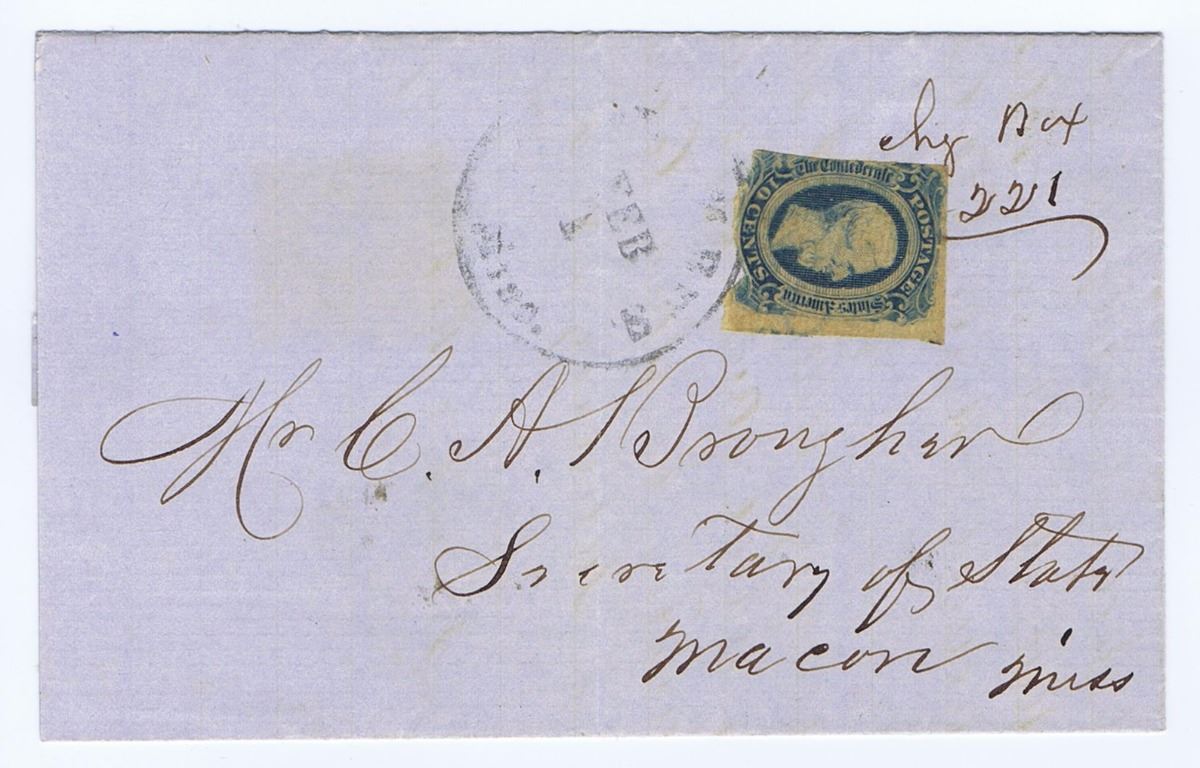 chg Box
221
The Confederate
POSTAGE
States America
10 CENTS
FEB
1
MISS.
Mr C. A. Brougher
Secretary of State
Macon Miss